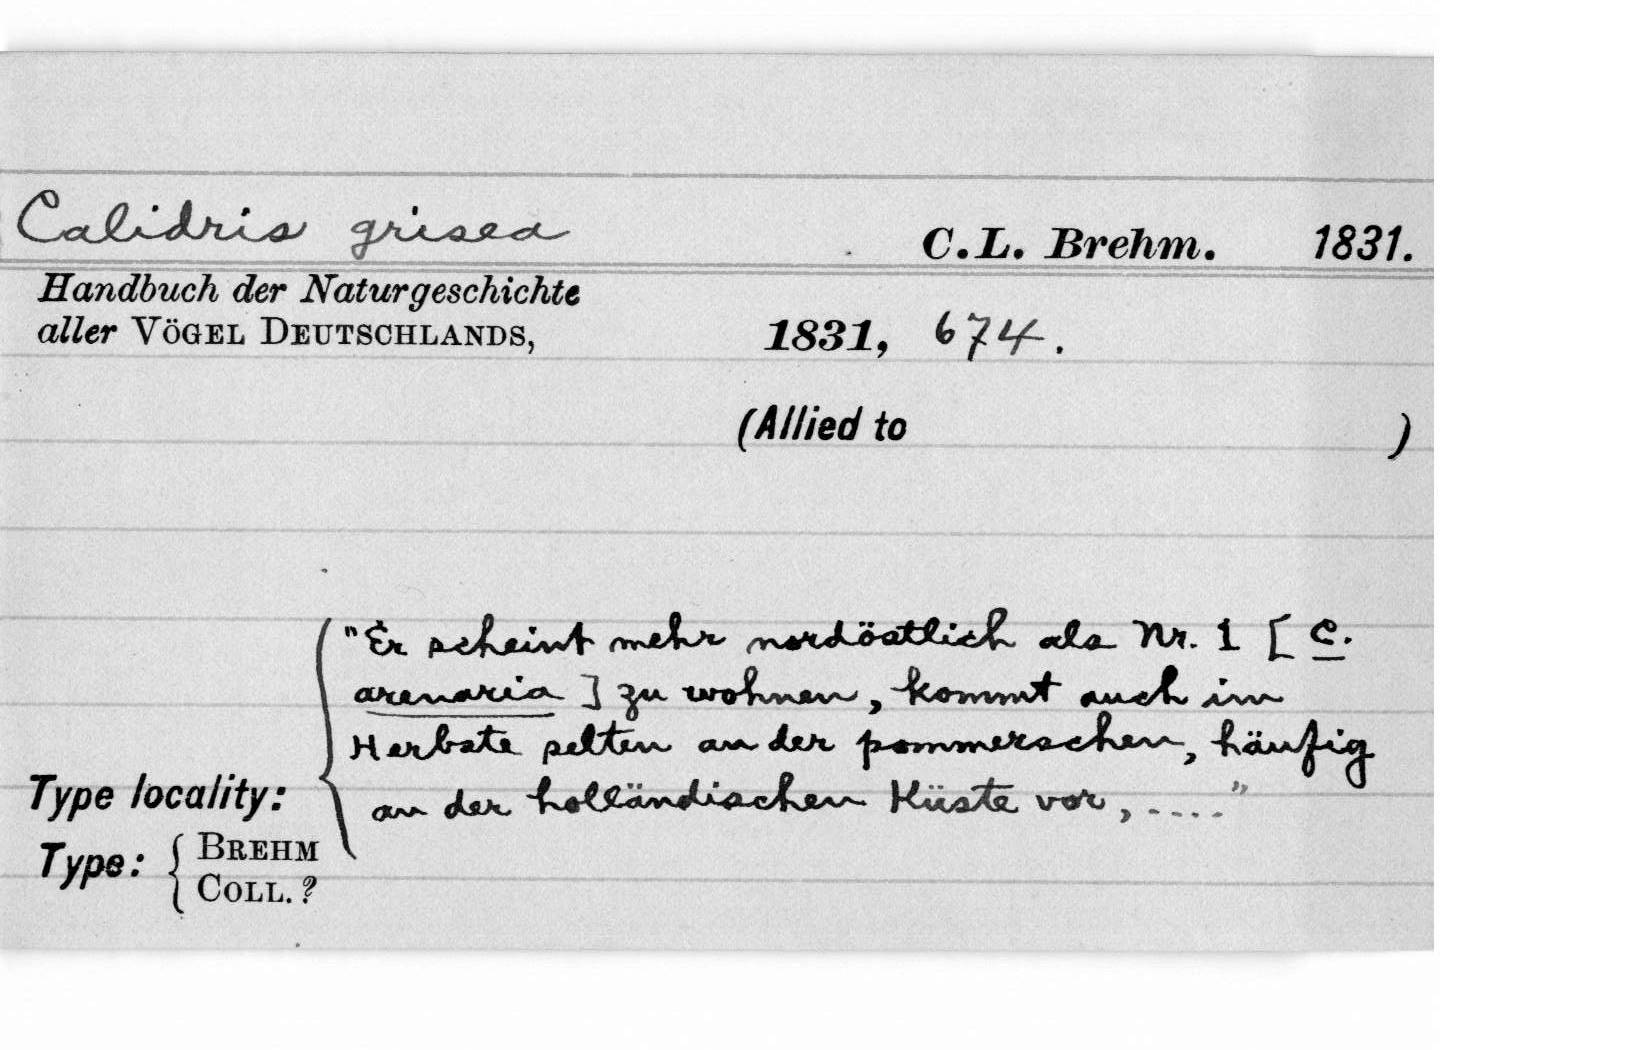 Calidris grisea C.L. Brehm. 1831.
Handbuch der Naturgeschichte
aller VÖGEL DEUTSCHLANDS, 1831, 674.
(Allied to )
"Er scheint mehr nordöstlich als Nr. 1 [C.
arenaria] zu wohnen, kommt auch im
Herbste selten an der pommerschen, häufig
an der holländischen Küste vor, ...."
Type locality:
Type: { BREHM
COLL. ?